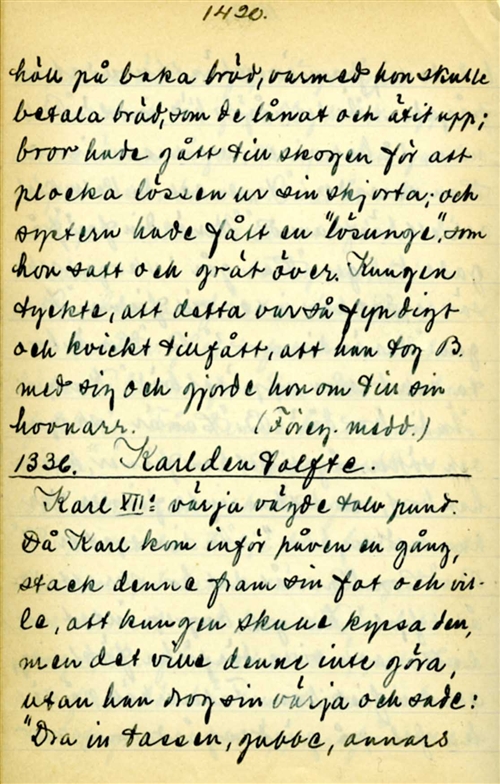 1420.
höll på baka bröd, varmed hon skulle
betala bröd, som de lånat och ätit upp;
bror hade gått till skogen för att
plocka lössen ur sin skjorta; och
systern hade fått en "lösunge", som
hon satt och grät över. Kungen
tyckte, att detta var så fyndigt
och kvickt tillfått, att han tog B.
med sig och gjorde honom till sin
hovnarr. (Föreg. medd.)
1336. Karl den tolfte.
Karl XII: värja vägde tolv pund.
Då Karl kom inför påven en gång,
stack denne fram sin fot och vil-
le, att kungen skulle kyssa den,
men det ville denne inte göra,
utan han drog sin värja och sade:
"Dra in tassen, gubbe, annars